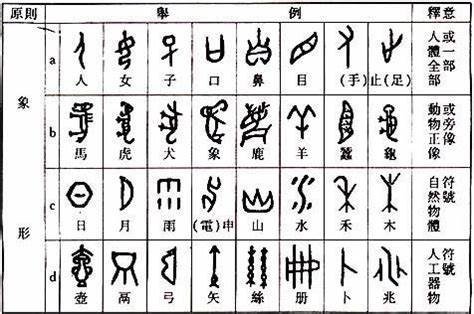 原則 舉例 釋意
象形
a 人 女 子 口 鼻 目 (手) 止(足) 人體全部或一部
b 馬 虎 犬 象 鹿 羊 蠶 龜 動物正像或旁像
c 日 月 雨 (電)申 山 水 禾 木 自然物體符號
d 壺 鬲 弓 矢 絲 册 卜 兆 人工器物符號